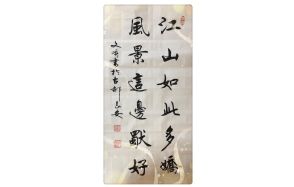 江山如此多嬌
風景這邊獸好
文 書於古都長安